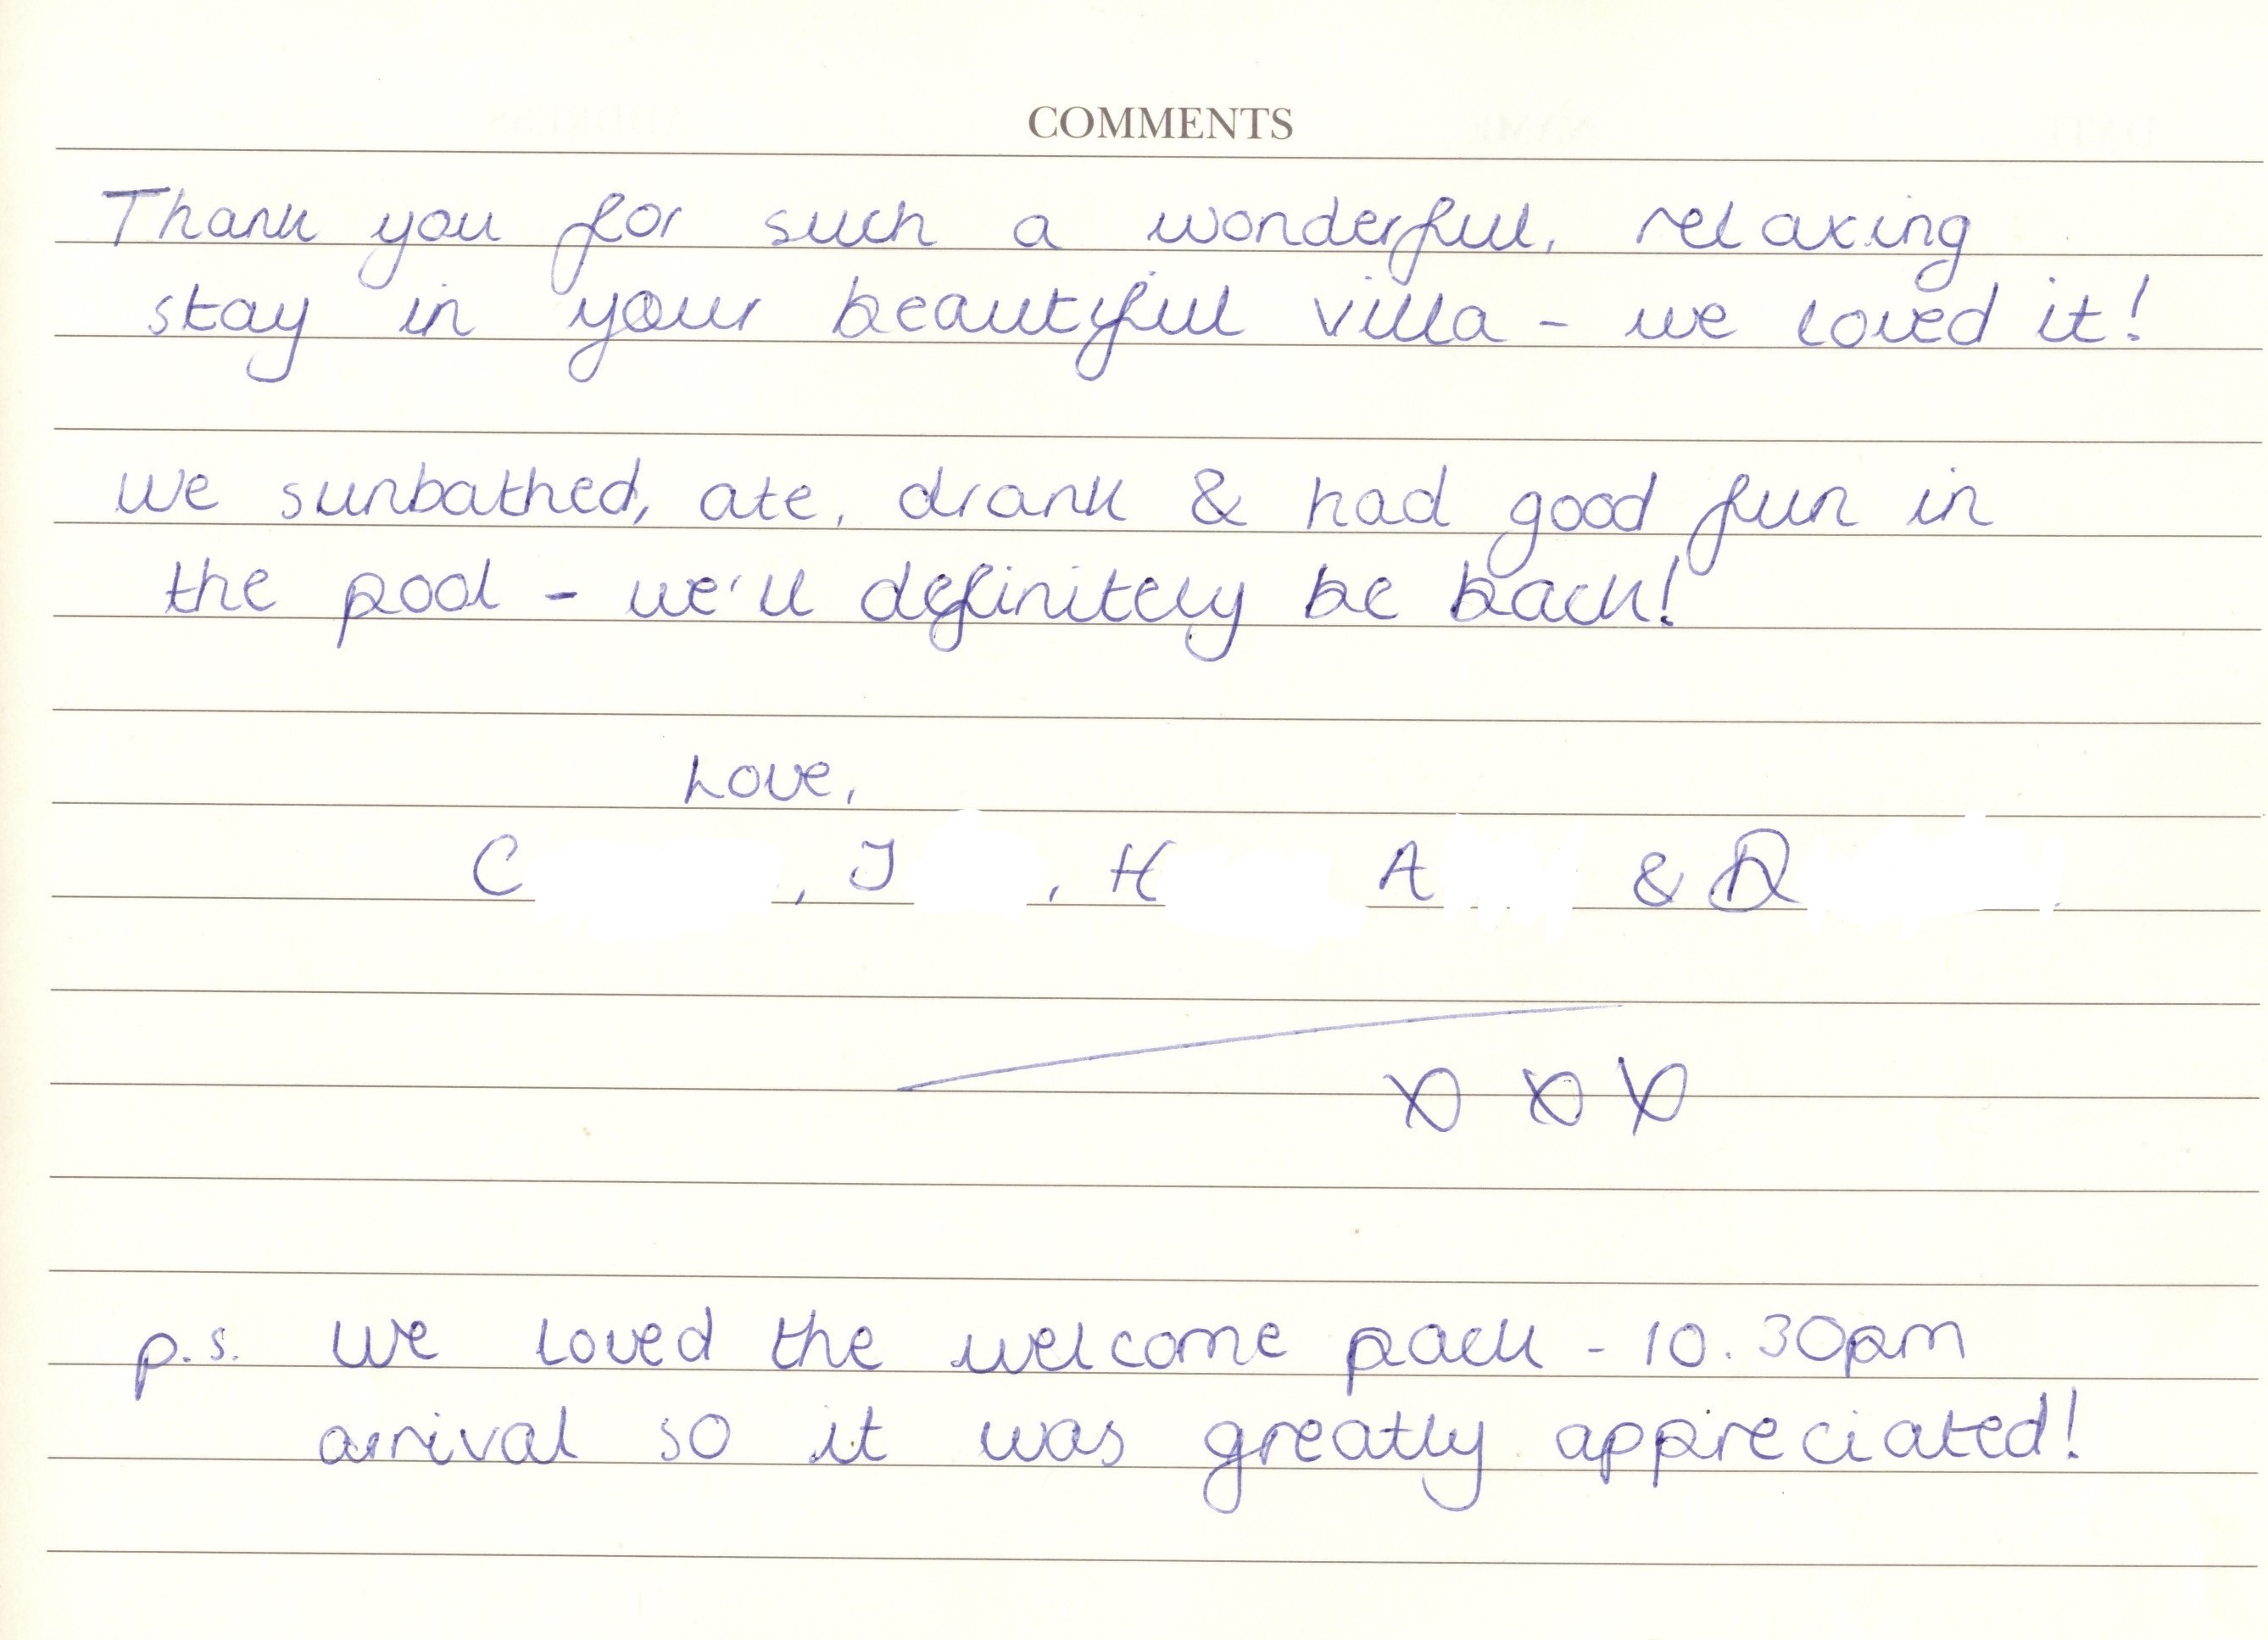 COMMENTS
Thank you for such a wonderful, relaxing
stay in your beautiful villa - we loved it!
We sunbathed, ate, drank & had good fun in
the pool - we'll definitely be back!
Love,
C , J , H A &
x x x
p.s. We loved the welcome pack - 10.30pm
arrival so it was greatly appreciated!